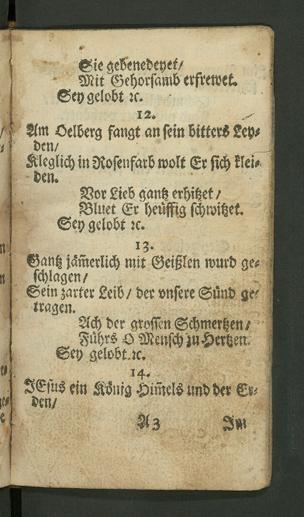 Sie gebenedeyet/
Mit Gehorsamb erfrewet.
Sey gelobt ꝛc.
12.
Am Oelberg fangt an sein bitters Ley-
den/
Kleglich in Rosenfarb wolt Er sich klei-
den.
Vor Lieb gantz erhitzet/
Bluet Er heüffig schwitzet.
Sey gelobt ꝛc.
13.
Gantz jäm̃erlich mit Geißlen wurd ge-
schlagen/
Sein zarter Leib/ der vnsere Sünd ge-
tragen.
Ach der grossen Schmertzen/
Führs O Mensch zu Hertzen.
Sey gelobt.ꝛc.
14.
JEsus ein König Him̃els und der Er-
den/
A3 Im